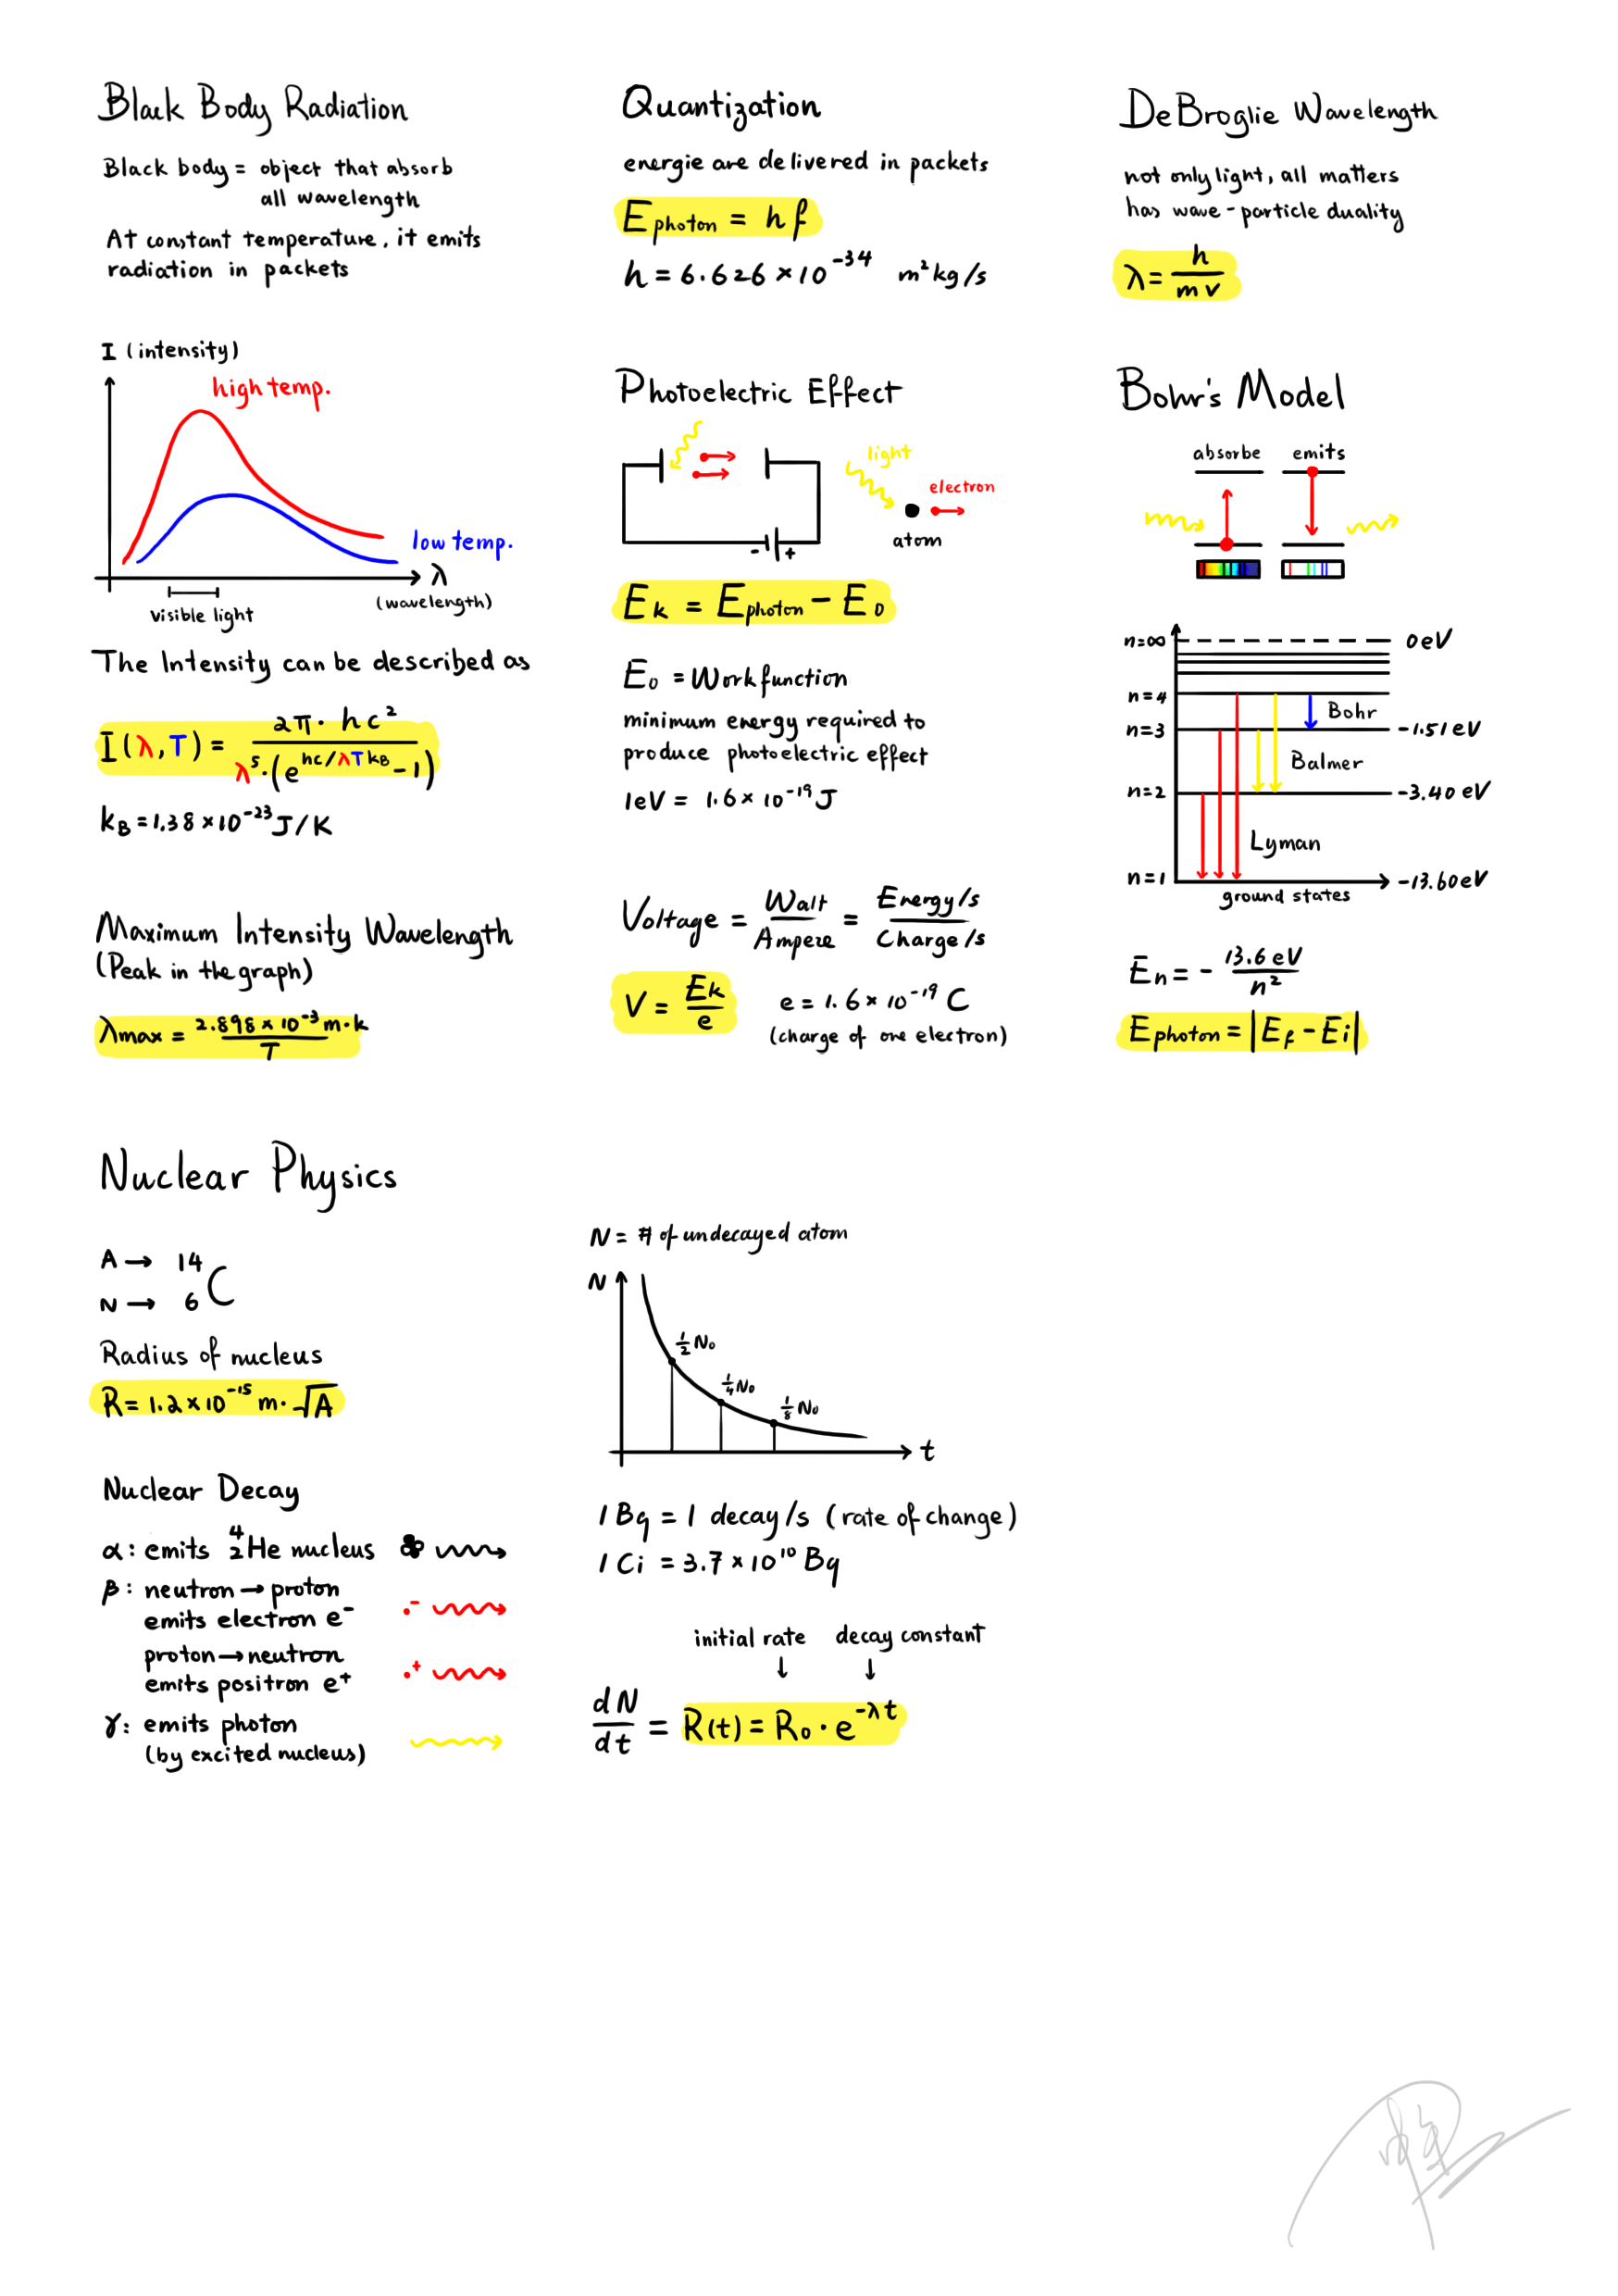 Black Body Radiation
Black body = object that absorb
all wavelength
At constant temperature, it emits
radiation in packets
I (intensity)
high temp.
low temp.
λ
(wavelength)
visible light
The Intensity can be described as
I(λ,T) = 2π·hc² / λ⁵·(e^(hc/λTk_B) - 1)
k_B = 1.38 × 10⁻²³ J/K
Maximum Intensity Wavelength
(Peak in the graph)
λmax = 2.898 × 10⁻³ m·k / T
Quantization
energie are delivered in packets
E photon = hf
h = 6.626 × 10⁻³⁴ m²kg/s
Photoelectric Effect
light
electron
atom
- +
E_k = E photon - E₀
E₀ = Work function
minimum energy required to
produce photoelectric effect
1eV = 1.6 × 10⁻¹⁹ J
Voltage = Watt / Ampere = Energy/s / Charge/s
V = E_k / e
e = 1.6 × 10⁻¹⁹ C
(charge of one electron)
DeBroglie Wavelength
not only light, all matters
has wave-particle duality
λ = h / mv
Bohr's Model
absorbe emits
n=∞ 0eV
n=4
Bohr
n=3 -1.51eV
Balmer
n=2 -3.40eV
Lyman
n=1 -13.60eV
ground states
En = - 13.6 eV / n²
E photon = |E_f - Ei|
Nuclear Physics
A → 14
C
N → 6
Radius of nucleus
R = 1.2 × 10⁻¹⁵ m·√A
Nuclear Decay
α: emits ⁴₂He nucleus
β: neutron → proton
emits electron e⁻
-
proton → neutron
emits positron e⁺
+
γ: emits photon
(by excited nucleus)
N = # of undecayed atom
N
½N₀
¼N₀
⅛N₀
t
1 Bq = 1 decay/s (rate of change)
1 Ci = 3.7 × 10¹⁰ Bq
initial rate decay constant
↓ ↓
dN/dt = R(t) = R₀·e^(-λt)